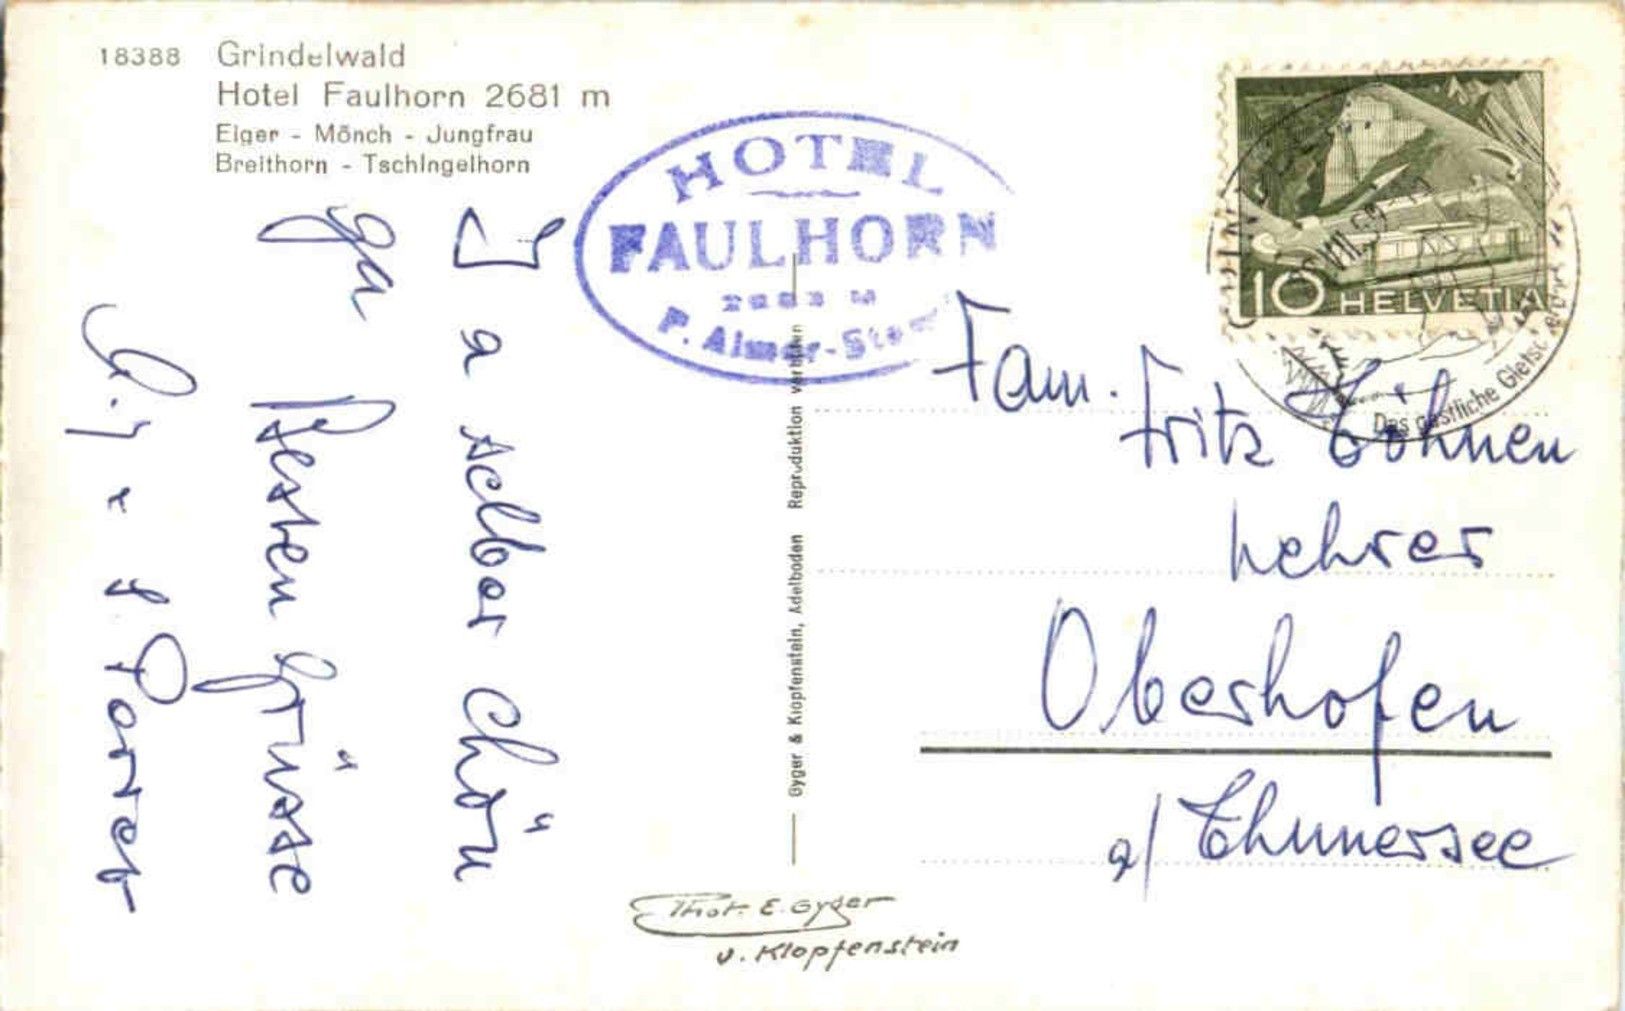 18388 Grindelwald
Hotel Faulhorn 2681 m
Eiger - Mönch - Jungfrau
Breithorn - Tschingelhorn
HOTEL
FAULHORN
P. Almer-
10 HELVETIA
Das gastliche Gletsc
selber schön
ga
Besten Grüsse
Fam.
Fritz
Lehrer
Oberhofen
a/ Thunersee
Gyger & Klopfenstein, Adelboden Reproduktion verboten
Phot. E. Gyger
u. Klopfenstein